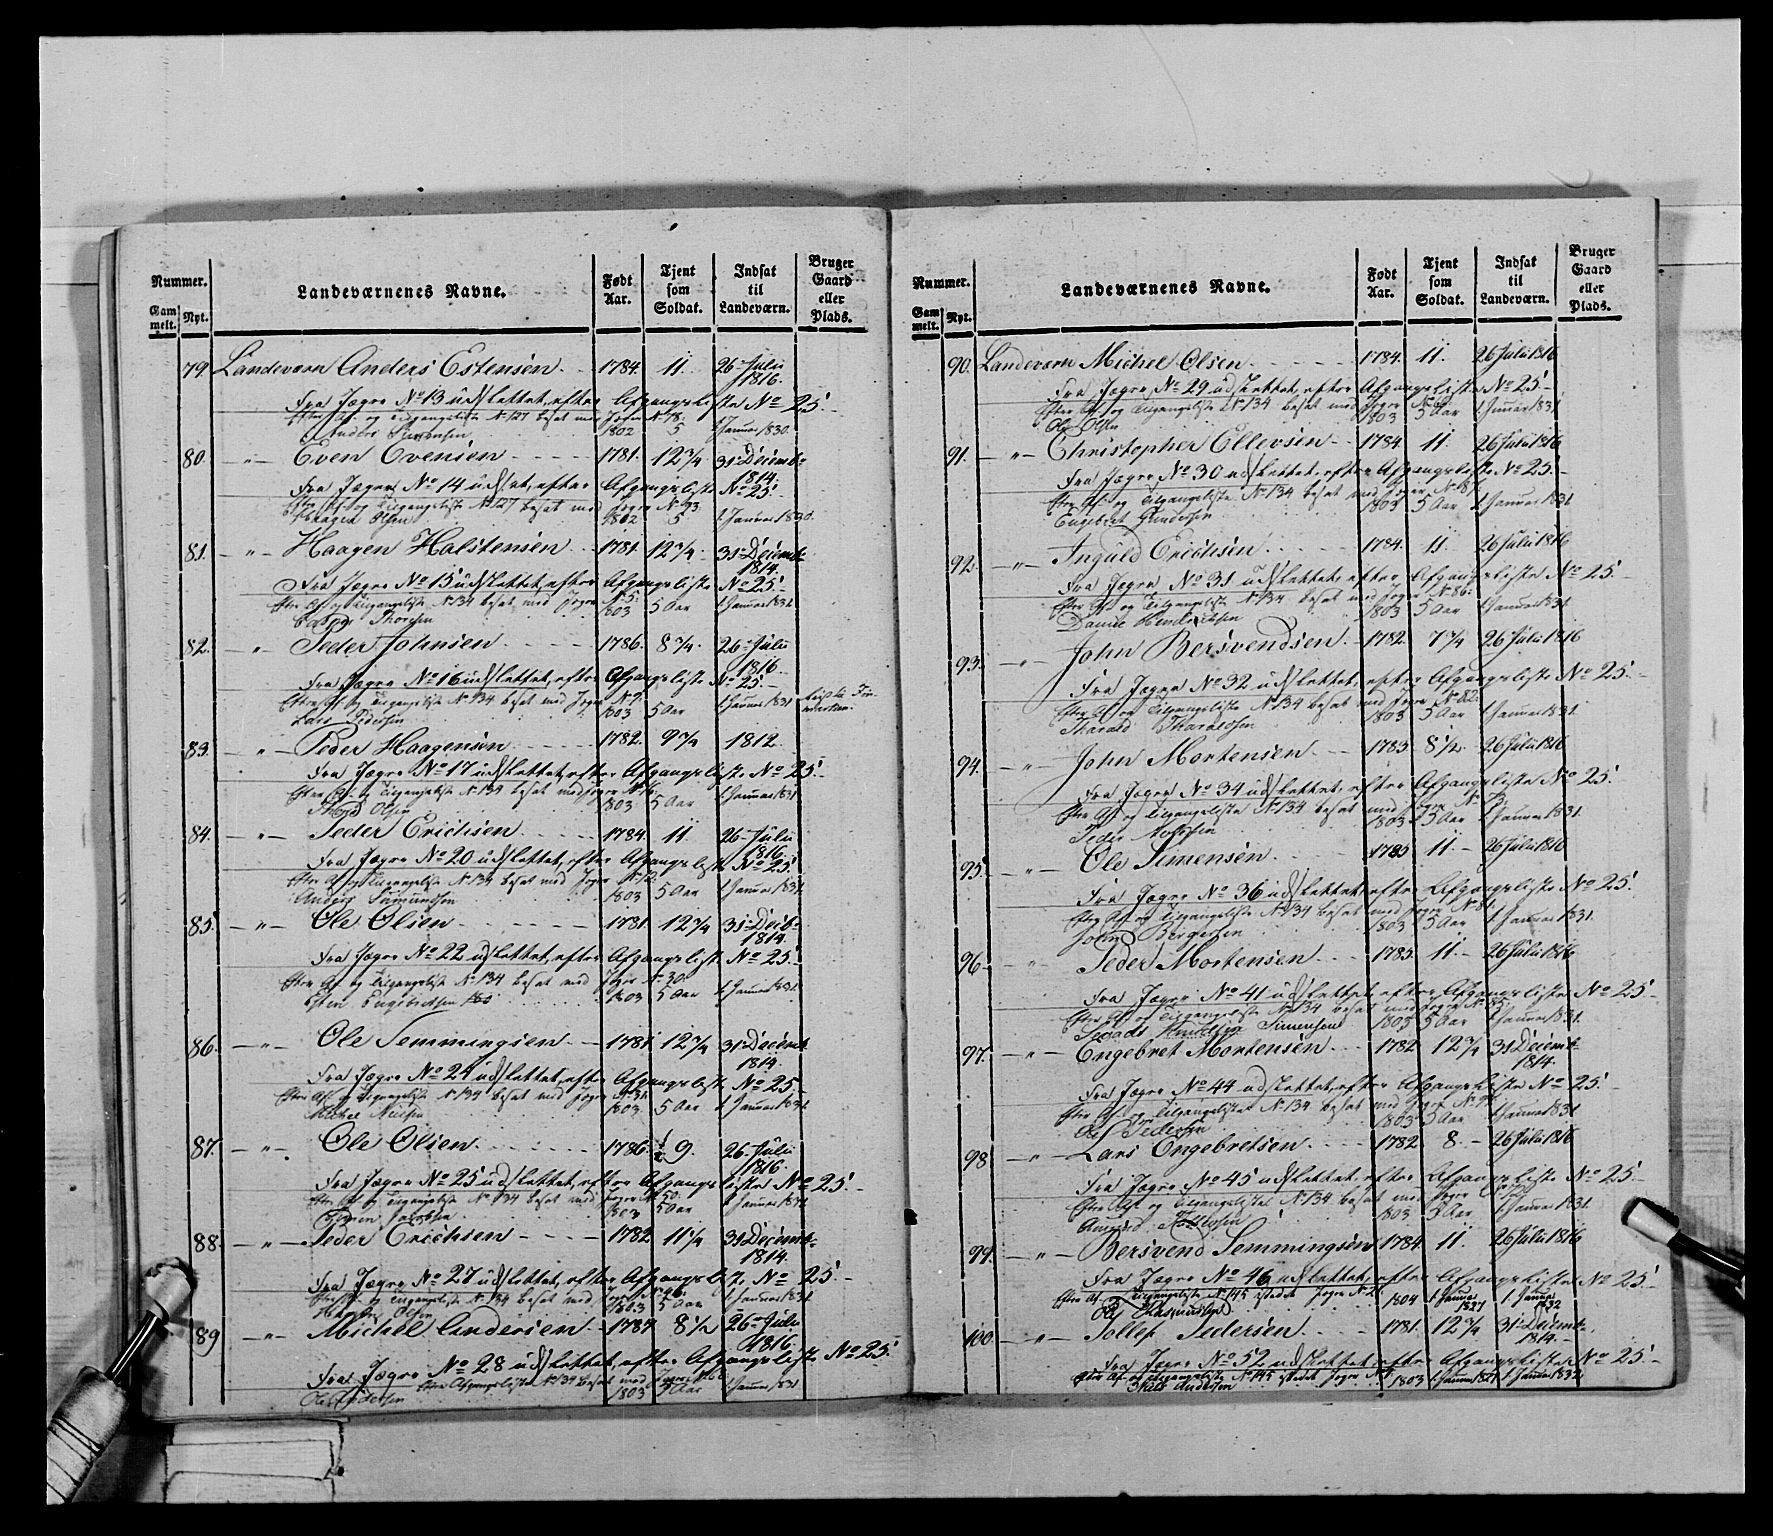 Nummer.
Gammelt. Nyt.
Landeværnenes Navne.
Født Aar.
Tjent som Soldat.
Indsat til Landeværn.
Bruger Gaard eller Plads.
79. Landeværn Anders Estensen 1784. 11. 26 Julii 1816.
Fra Jægre No 13 udslettet, efter Afgangsliste No 25.
Efter Af og Tilgangsliste No 127 besat med Jægre No 78.
Anders 1802 5 1. Januar 1830.
80. — " — Even Evensen 1781. 12 3/4 31 Decemb. 1814.
Fra Jægre No 14 uds.et, efter Afgangsliste No 25.
Efter Af og Tilgangsliste No 127 besat med Jægre No
Haagen Olsen 1802 5 1. Januar 1830.
81. — " — Haagen Halstensen 1781. 12 3/4 31 Decemb. 1814.
Fra Jægre No 15 udslettet, efter Afgangsliste No 25.
Efter Af og Tilgangsliste No 134 besat med Jægre No 5.
Thoresen 1803 5 Aar 1. Januar 1831.
82. — " — Peder Johnsen 1786. 8 3/4. 26 Julii 1816.
Fra Jægre No 16 udslettet, efter Afgangsliste No 25.
Efter Af og Tilgangsliste No 134 besat med Jægre No 7.
Lars Pedersen 1803 5 Aar 1. Januar 1831
83. — " — Peder Haagensen 1782. 9 3/4 1812.
Fra Jægre No 17 udslettet, efter Afgangsliste No 25.
Efter Af og Tilgangsliste No 134 besat med Jægre No
Olsen 1803 5 Aar 1. Januar 1831.
84. — " — Peder Erichsen 1784. 11. 26 Julii 1816.
Fra Jægre No 20 udslettet, efter Afgangsliste No 25.
Efter Af og Tilgangsliste No 134 besat med Jægre No
Anders 1803 5 Aar 1. Januar 1831.
85. — " — Ole Olsen 1781. 12 3/4 31 Decb. 1814.
Fra Jægre No 22 udslettet, efter Afgangsliste No 25.
Efter Af og Tilgangsliste No 134 besat med Jægre No 30.
Esten Engebretsen 1803 5 Aar 1. Januar 1831.
86. — " — Ole Semmingsen 1781. 12 3/4 31 Decemb. 1814.
Fra Jægre No 24 udslettet, efter Afgangsliste No 25.
Efter Af og Tilgangsliste No 134 besat med Jægre No 31.
Michel 1803. 5 Aar 1. Januar 1831.
87. — " — Ole Olsen 1786. 9. 26 Julii 1816.
Fra Jægre No 25 udslettet, efter Afgangsliste No 25.
Efter Af og Tilgangsliste No 134 besat med Jægre No 50.
1803 5 Aar 1. Januar 1831
88. — " — Peder Erichsen 1782 11 1/4 31 Decemb. 1814.
Fra Jægre No 27 udslettet, efter Afgangsliste No 25.
Efter Af og Tilgangsliste No 134 besat med Jægre No 46.
Olsen 1803 5 Aar 1. Januar 1831
89 — " — Michel Andersen 1787. 8 1/2 26 Julii 1816.
Fra Jægre No 28 udslettet, efter Afgangsliste No 25.
Efter Afgangsliste No 134 besat med Jægre No
Ole Pedersen 1803 5 Aar 1. Januar 1831
Nummer.
Gammelt. Nyt.
Landeværnenes Navne.
Født Aar.
Tjent som Soldat.
Indsat til Landeværn.
Bruger Gaard eller Plads.
90. Landeværn Michel Olsen 1784. 11. 26 Julii 1816
Fra Jægre No 29 udslettet, efter Afgangsliste No 25.
Efter Af og Tilgangsliste No 134 besat med Jægre No
Ole Olsen 1803 5 Aar 1. Januar 1831
91. — " — Christopher Ellevsen 1784 11 26 Julii 1816
Fra Jægre No 30 udslettet, efter Afgangsliste No 25.
Efter Af og Tilgangsliste No 134 besat med Jægre No 87.
Engebret Gundersen 1803 5 Aar 1. Januar 1831
92. — " — Inguld Erichsen 1784. 11. 26 Julii 1816
Fra Jægre No 31 udslettet, efter Afgangsliste No 25.
Efter Af og Tilgangsliste No 134 besat med Jægre No 86.
Henderichsen 1803 5 Aar 1. Januar 1831.
93. — " — John Bersvendsen 1782. 7 3/4 26 Julii 1816
Fra Jægre No 32 udslettet, efter Afgangsliste No 25.
Efter Af og Tilgangsliste No 134 besat med Jægre No 82.
Tharald Tharaldsen 1803 5 Aar 1. Januar 1831.
94. — " — John Mortensen 1783 8 1/2 26 Julii 1816
Fra Jægre No 34 udslettet, efter Afgangsliste No 25.
Efter Af og Tilgangsliste No 134 besat med Jægre No
Peder 1803 5 Aar 1. Januar 1831.
95. — " — Ole Simensen 1785 11 26 Julii 1816
Fra Jægre No 36 udslettet, efter Afgangsliste No 25.
Efter Af og Tilgangsliste No 134 besat med Jægre No 81.
John Bergersen 1803 5 Aar 1. Januar 1831.
96. " Peder Mortensen 1785. 11. 26 Julii 1816
Fra Jægre No 41 udslettet, efter Afgangsliste No 25.
Efter Af og Tilgangsliste No 134 besat med Jægre No
Simensen 1803 5 Aar 1. Januar 1831.
97. — " — Engebret Mortensen 1782 12 3/4 31 Decemb. 1814.
Fra Jægre No 44 udslettet, efter Afgangsliste No 25.
Efter Af og Tilgangsliste No 134 besat med Jægre No
Ole Pedersen 1803 5 Aar 1. Januar 1831
98. — " — Lars Engebretsen 1782 8. 26 Julii 1816
Fra Jægre No 45 udslettet, efter Afgangsliste No 25.
Efter Af og Tilgangsliste No 134 besat med Jægre
1803 5 Aar 1. Januar 1831.
99. — " — Bersvend Semmingsen 1784 11 26 Julii 1816
Fra Jægre No 46 udslettet, efter Afgangsliste No 25.
Efter Af Tilgangsliste No 145 istedet Jægre No
Ole Rasmussen 1804 1. Januar 1827 1. Januar 1832
100. — " — Tollef Pedersen 1781. 12 3/4 31 Decemb. 1814.
Fra Jægre No 52 udslettet, efter Afgangsliste No 25.
Efter Af og Tilgangsliste No 145 istedet Jægre No
Nils Andersen 1803 1. Januar 1827 1. Januar 1832